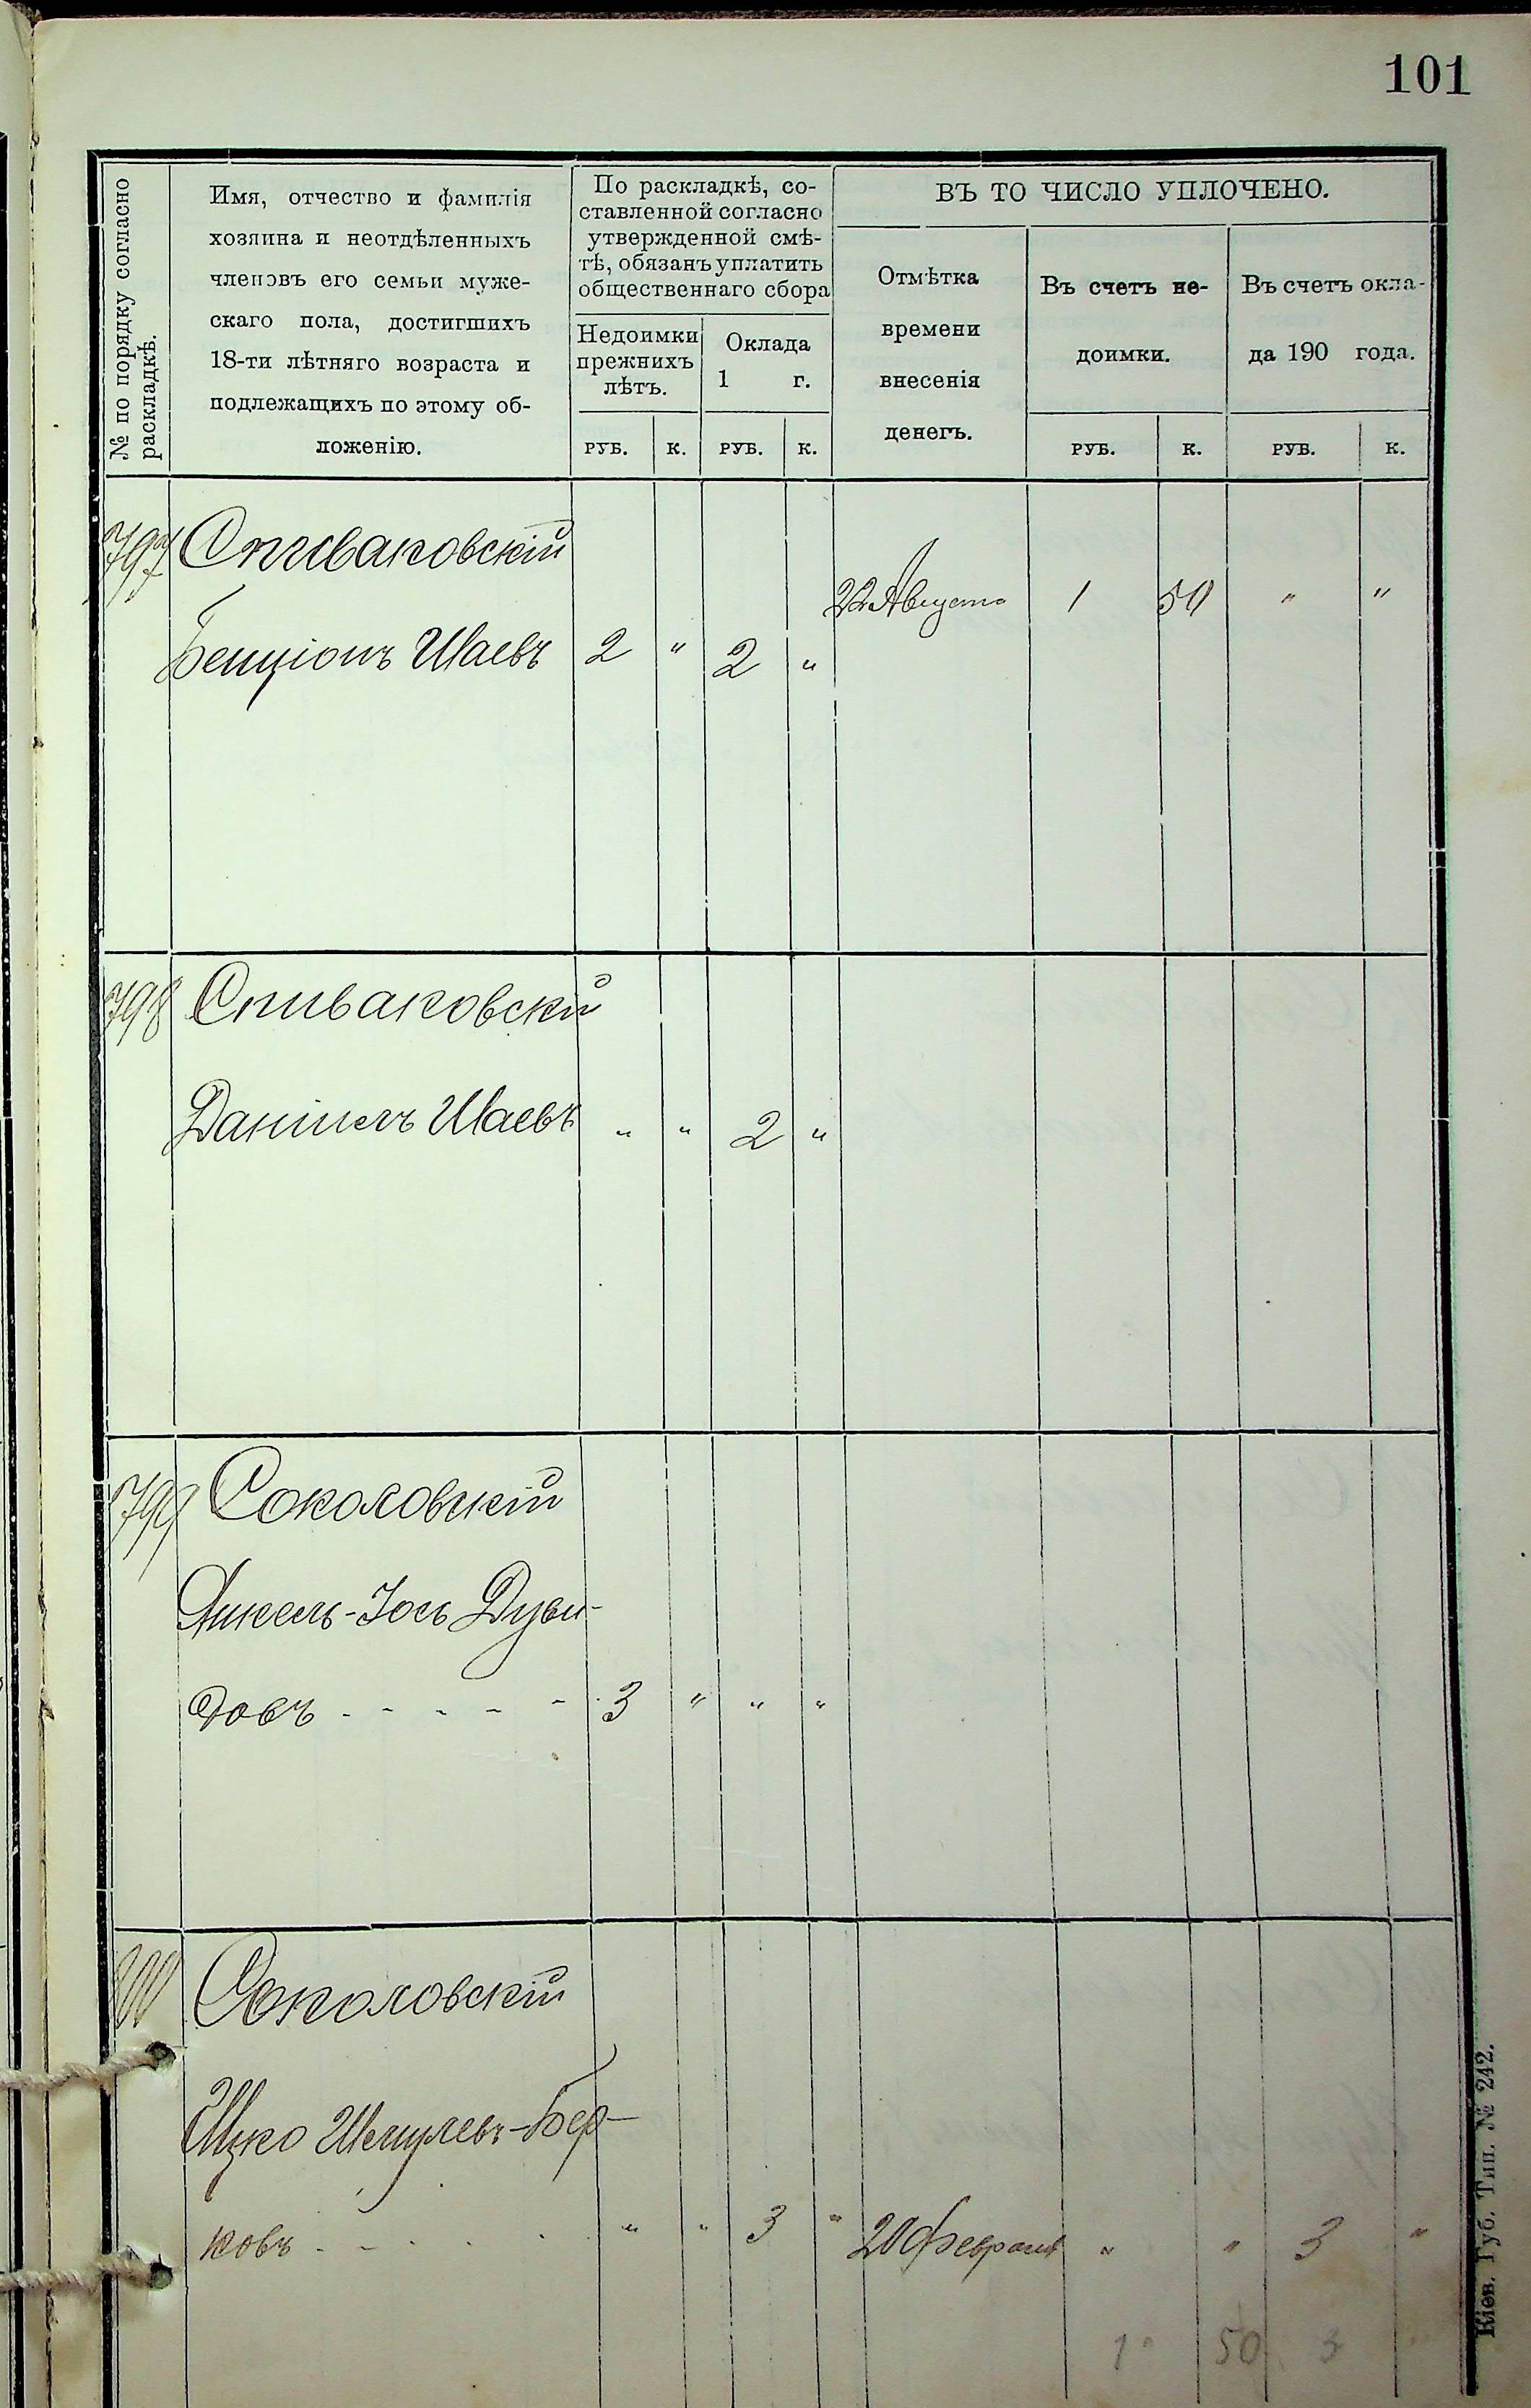 101
№ по порядку согласно
раскладкѣ.
Имя, отчество и фамилія
хозяина и неотдѣленныхъ
членовъ его семьи муже-
скаго пола, достигшихъ
18-ти лѣтняго возраста и
подлежащихъ по этому об-
ложенію.
По раскладкѣ, со-
ставленной согласно
утвержденной смѣ-
тѣ, обязанъ уплатить
общественнаго сбора
Недоимки
прежнихъ
лѣтъ.
Оклада
1 г.
РУБ. К. РУБ. К.
ВЪ ТО ЧИСЛО УПЛОЧЕНО.
Отмѣтка
времени
внесенія
денегъ.
Въ счетъ не-
доимки.
РУБ. К.
Въ счетъ окла-
да 190 года.
РУБ. К.
797 Спиваковскій
22 Августа 1 50 " "
Бенціонъ Шаевъ 2 " 2 "
798 Спиваковскій
Даніилъ Шаевъ " " 2 "
799 Соколовскій
Янкель-Іось Дуви-
довъ - - - - - 3 " " "
800 Соколовскій
Ицко Шмулевъ-Бер-
ковъ - - - - " " 3 " 20 февраля " " 3 "
1 " 50 3 "
Кіев. Губ. Тип. № 242.